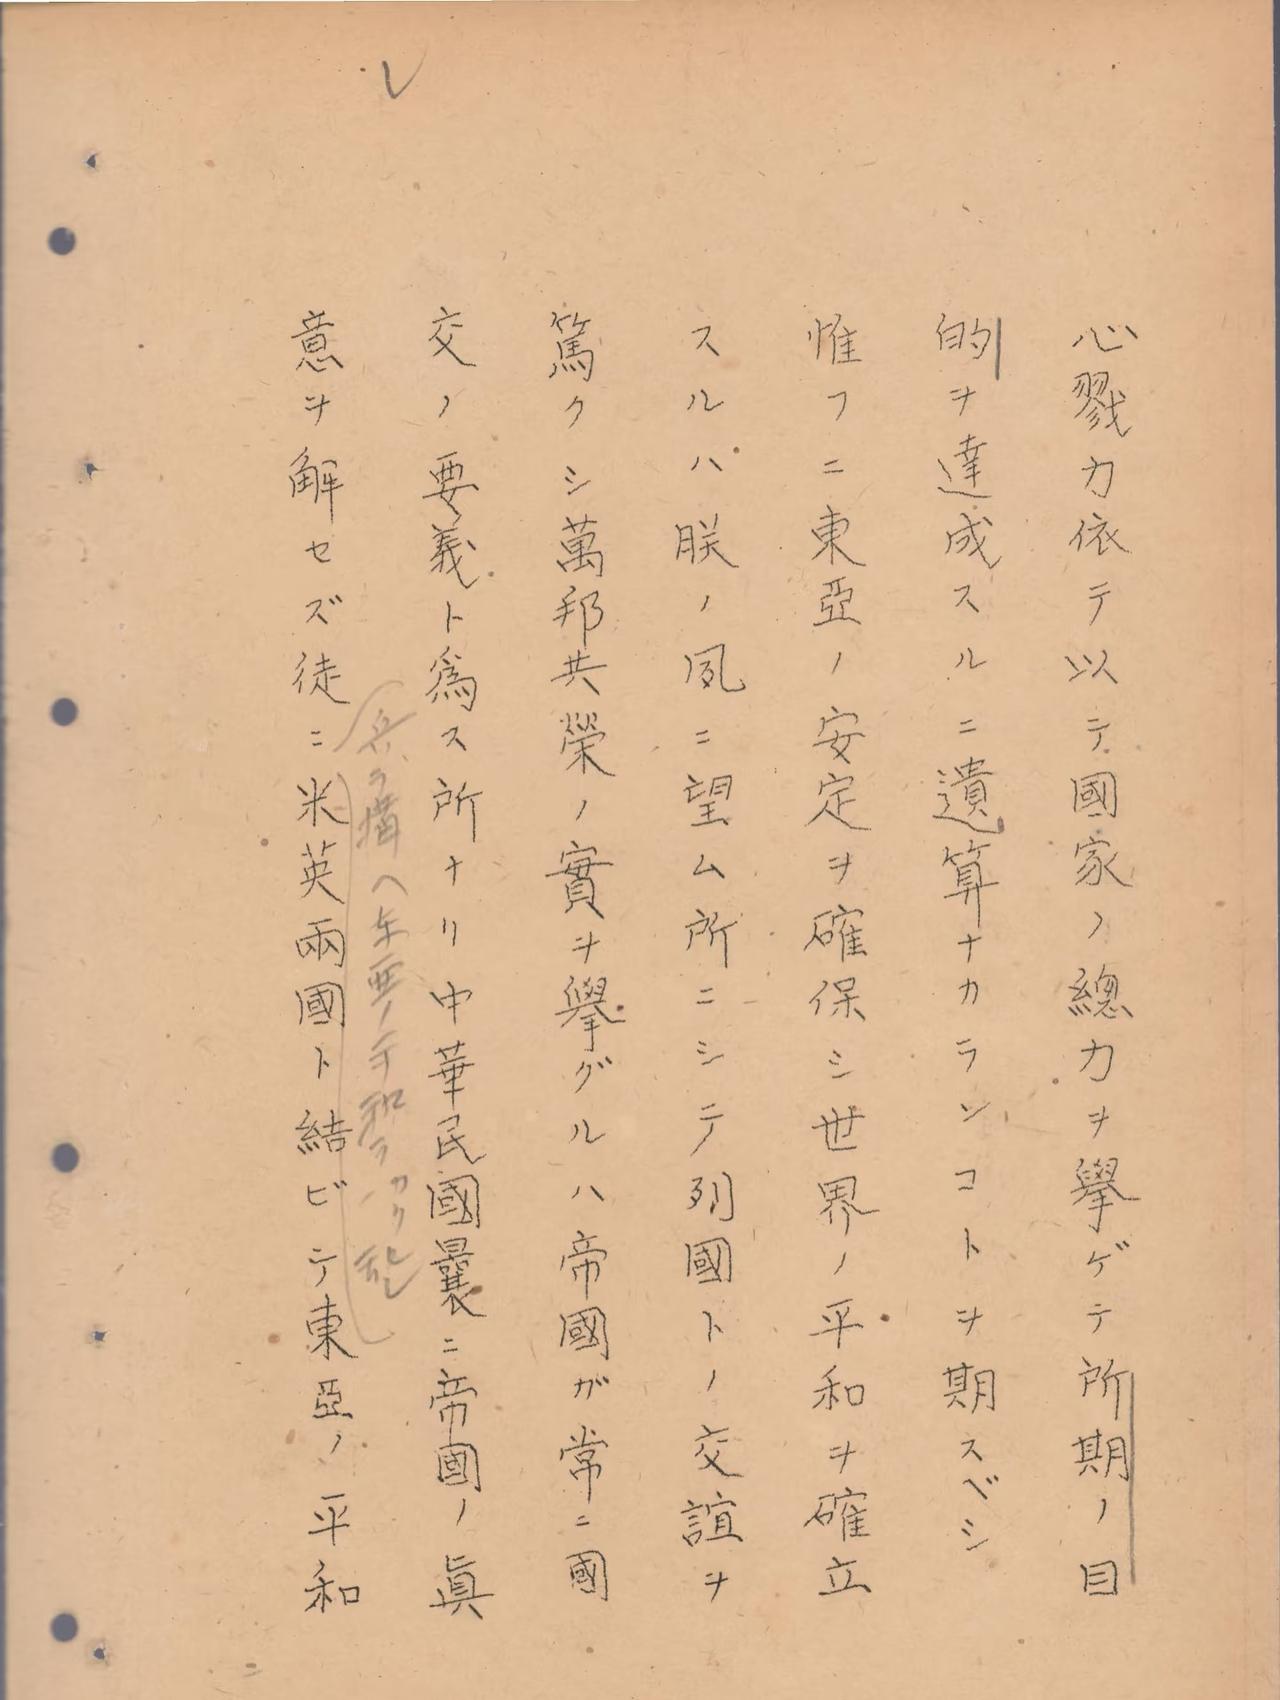 心戮力依テ以テ國家ノ總力ヲ擧ゲテ所期ノ目
的ヲ達成スルニ遺算ナカランコトヲ期スベシ
惟フニ東亞ノ安定ヲ確保シ世界ノ平和ヲ確立
スルハ朕ノ夙ニ望ム所ニシテ列國トノ交誼ヲ
篤クシ萬邦共榮ノ實ヲ擧グルハ帝國ガ常ニ國
交ノ要義ト爲ス所ナリ中華民國曩ニ帝國ノ眞
兵ヲ構ヘ東亞ノ平和ヲ
意ヲ解セズ徒ニ米英兩國ト結ビテ東亞ノ平和